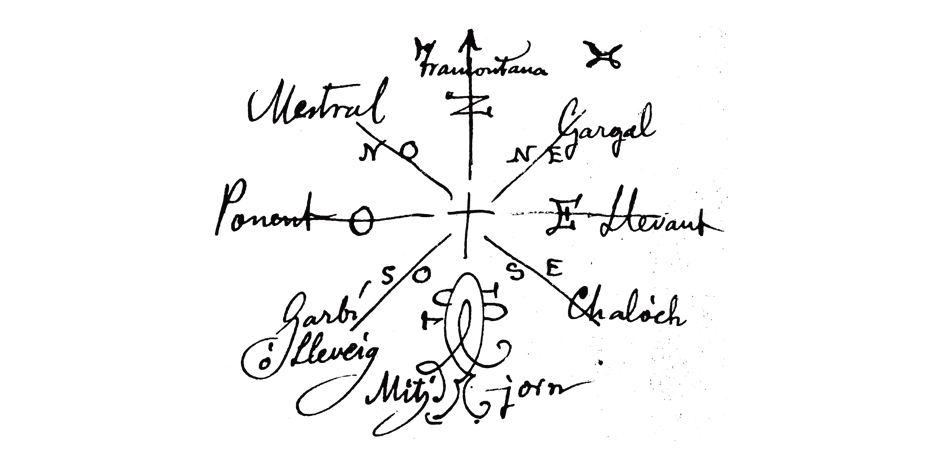 Tramontana
N
Mestral
N O
Gargal
N E
Ponent O
E Llevant
S O
S E
Garbí
ò Lleveig
Chalòch
Mitj-jorn